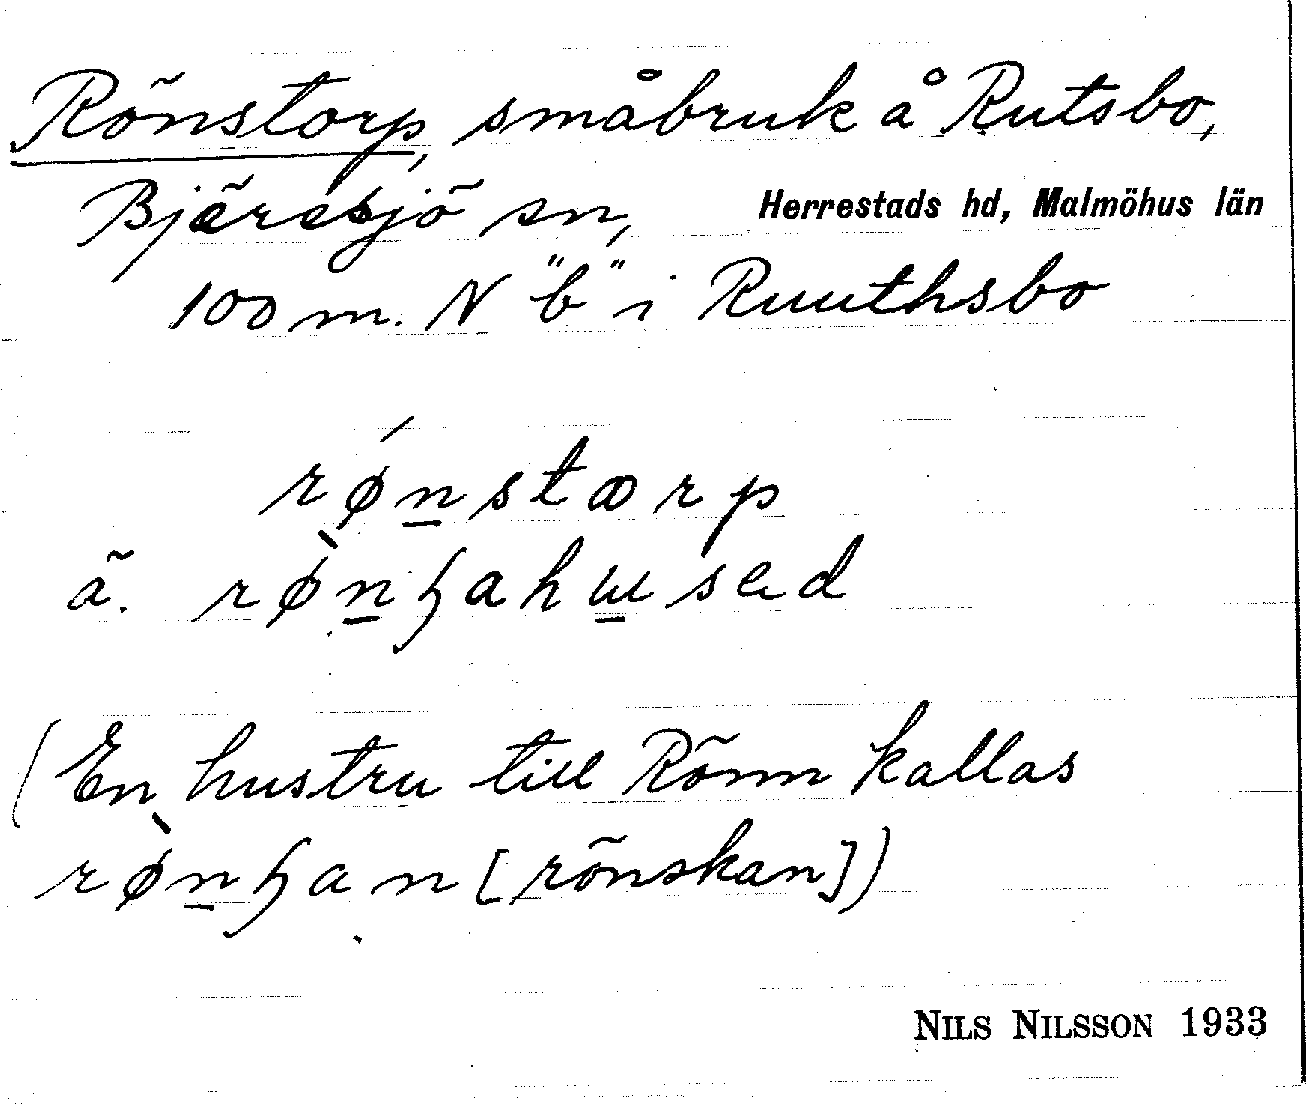 Rönstorp, småbruk å Rutsbo,
Bjäresjö sn, Herrestads hd, Malmöhus län
100 m. N "b" i Ruuthsbo
rǿn̲stœrp
ä. rø̀n̲ɧahɯ̲sɐd
(En hustru till Rönn kallas
rø̀n̲ɧan [rönskan])
NILS NILSSON 1933